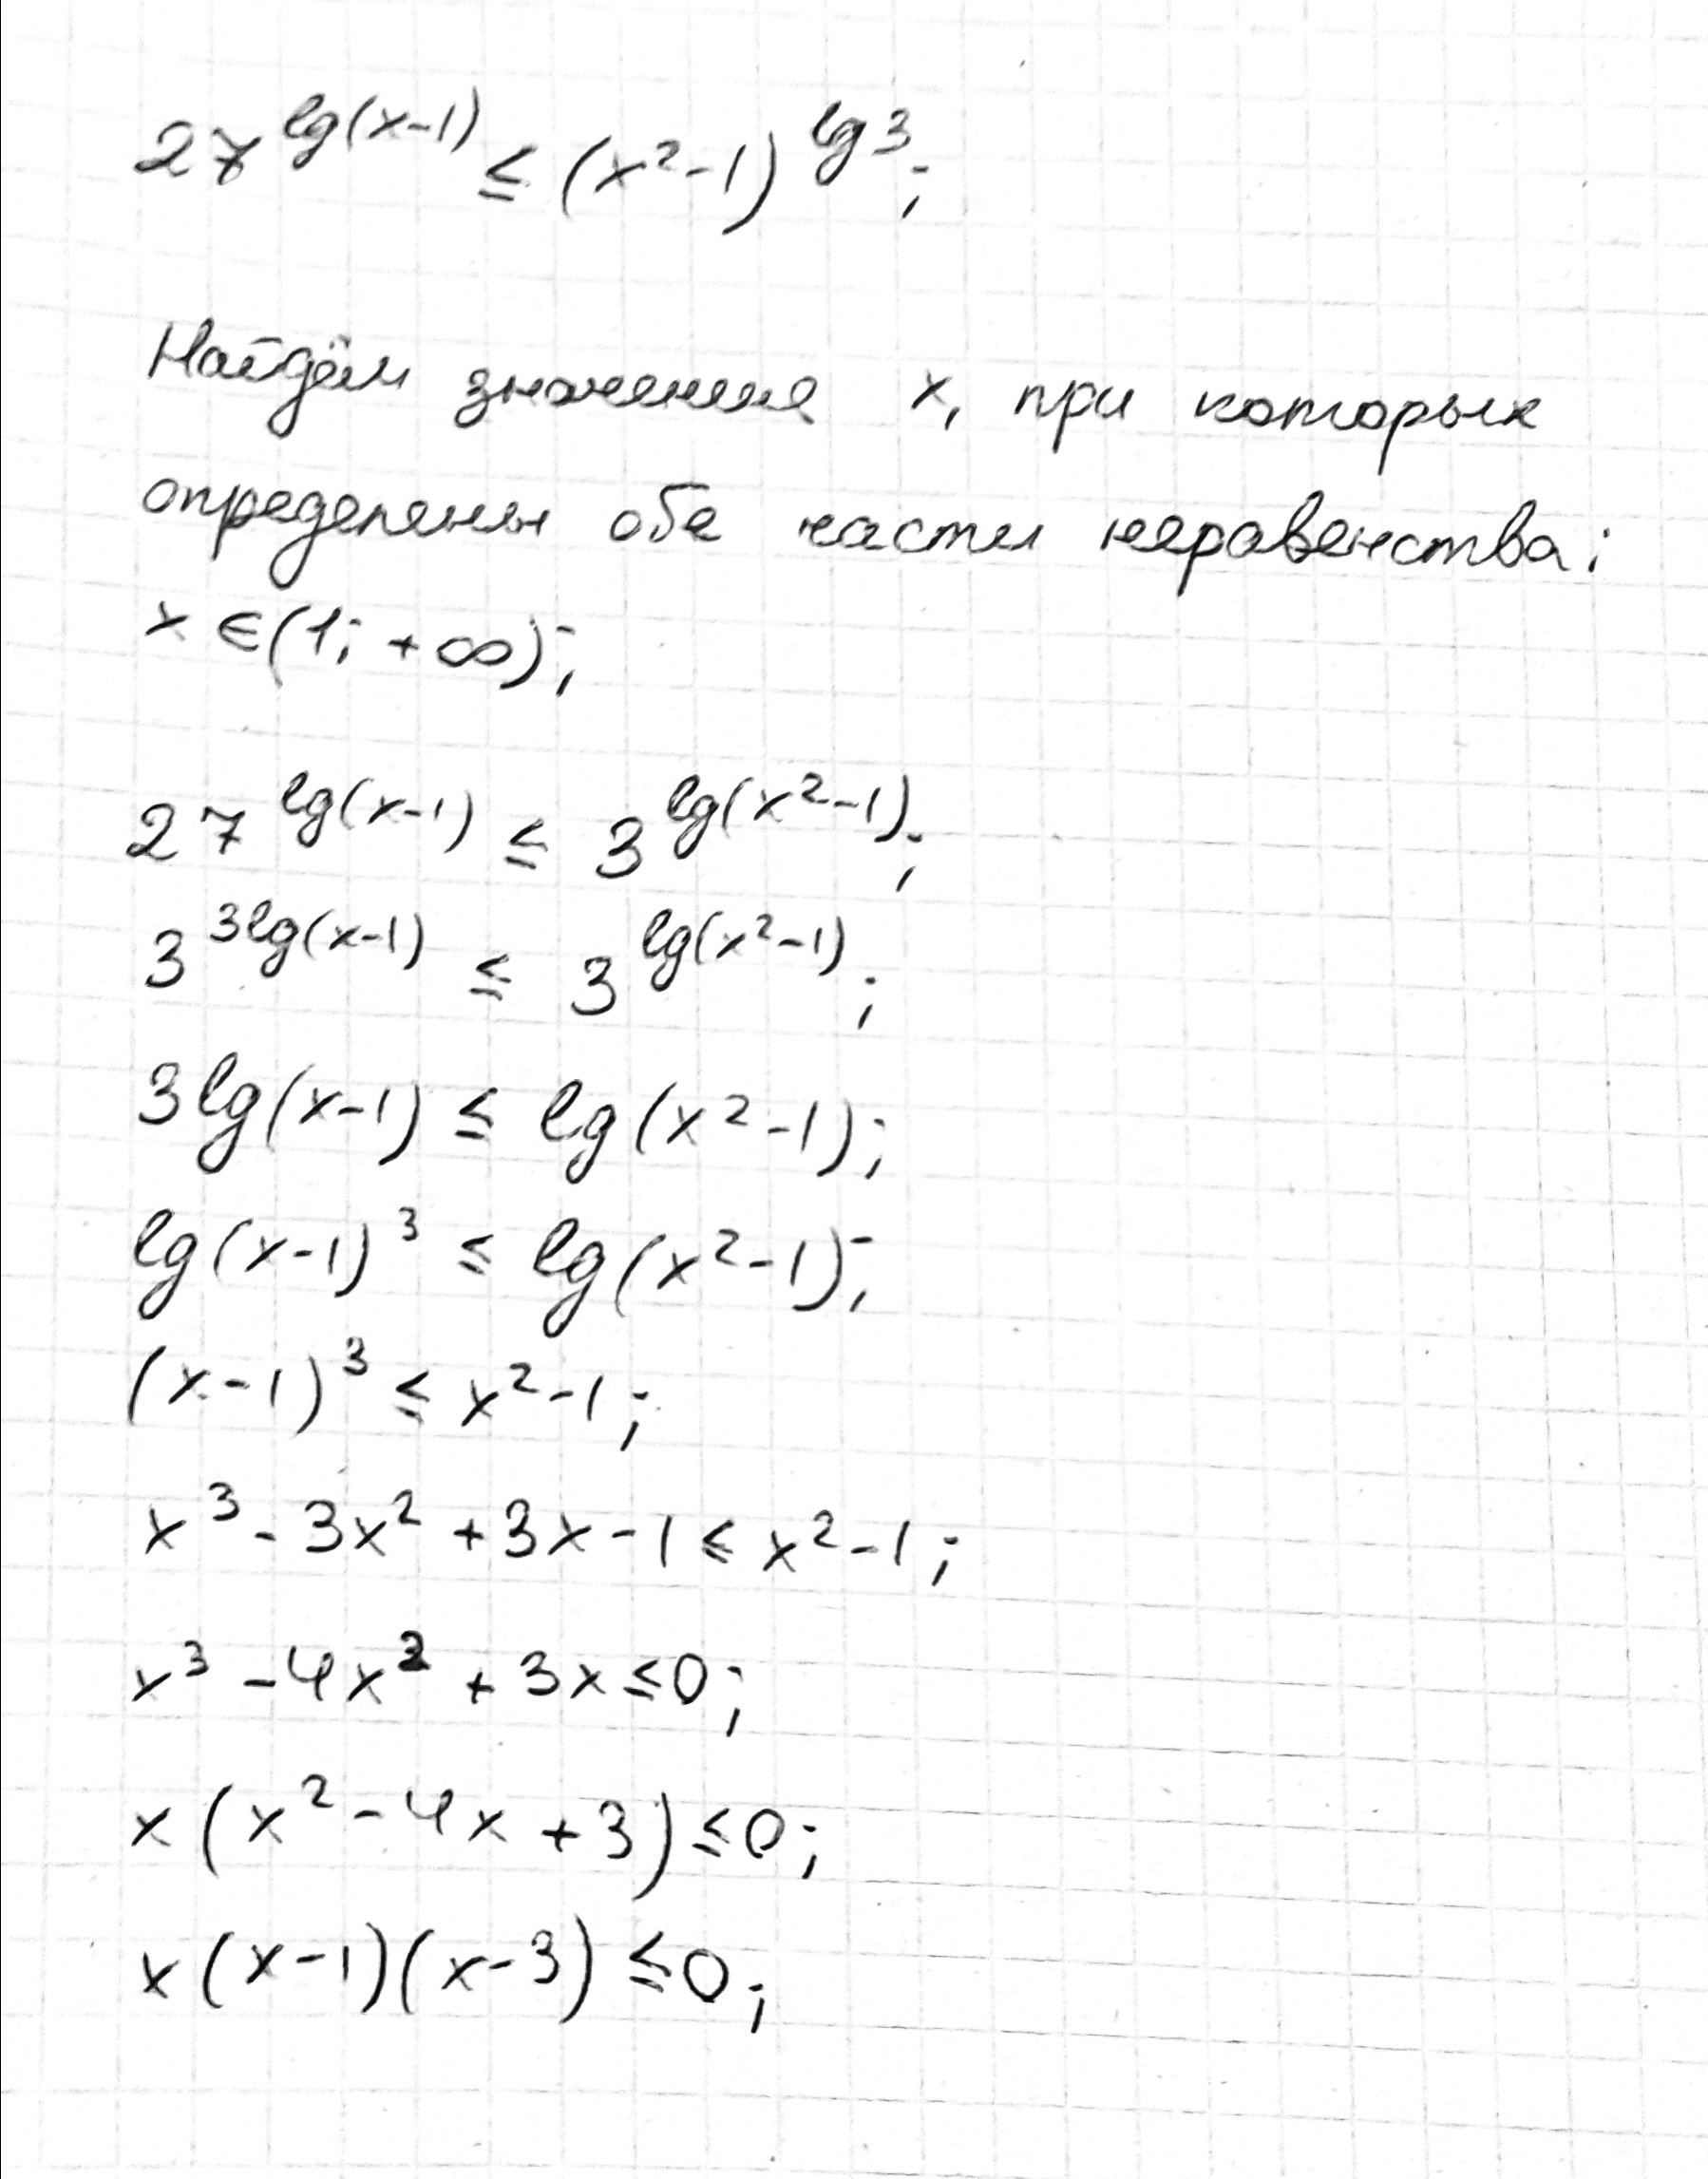 27^{lg(x-1)} ≤ (x²-1)^{lg3};
Найдём значения x, при которых
определены обе части неравенства:
x ∈ (1; +∞);
27^{lg(x-1)} ≤ 3^{lg(x²-1)};
3^{3lg(x-1)} ≤ 3^{lg(x²-1)};
3lg(x-1) ≤ lg(x²-1);
lg(x-1)³ ≤ lg(x²-1);
(x-1)³ ≤ x²-1;
x³ - 3x² + 3x - 1 ≤ x² - 1;
x³ - 4x² + 3x ≤ 0;
x(x² - 4x + 3) ≤ 0;
x(x-1)(x-3) ≤ 0;